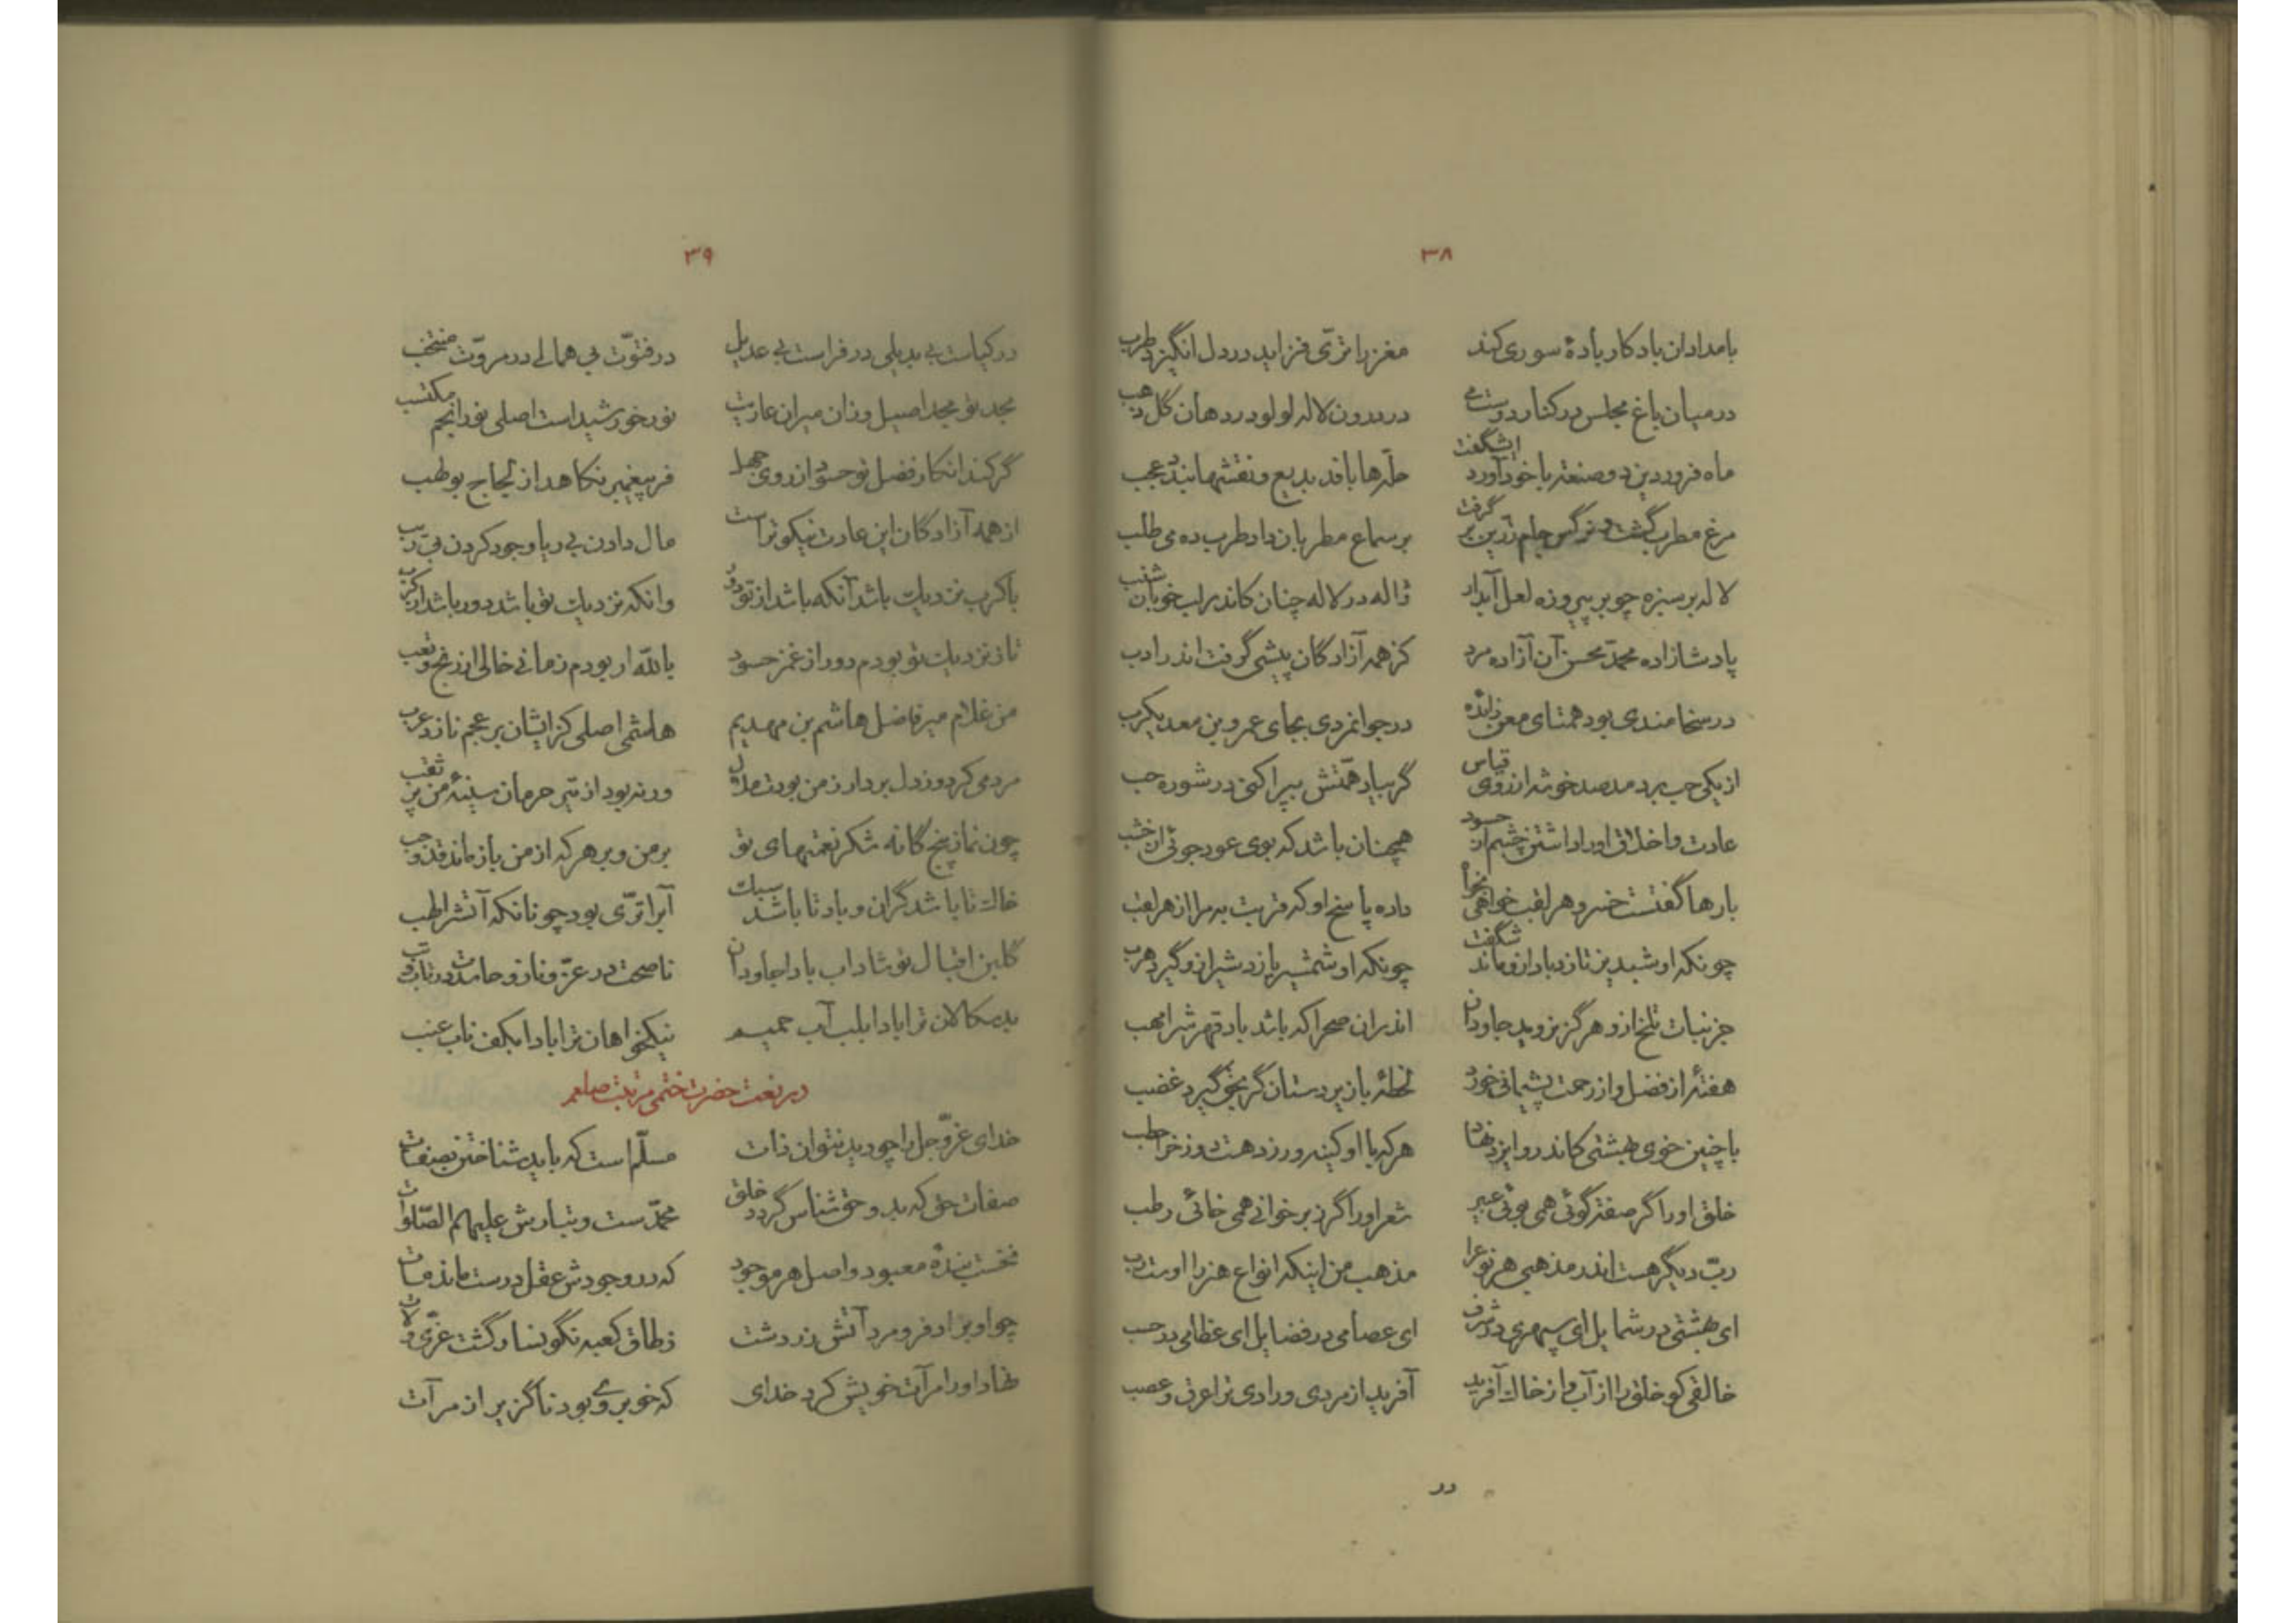 ۳۸
بامدادان یاد کار بادهٔ سوری کند مغز را تری فزاید در دل انگیزد طرب
در میان باغ مجلس در کنار دوست می در درون لاله لولو در دهان گل ذهب
ماه فروردین دو صنعت با خود آورد ای شگفت حله‌ها بافد بدیع و نقشها بندد عجب
مرغ مطرب گشت و نرگس جام زرین بر گرفت بر سماع مطربان داد طرب ده می طلب
لاله بر سبزه چو بر پیروزه لعل آبدار ژاله در لاله چنان کاندر لب خوبان شنب
پادشازاده محمد محسن آن آزاده مرد کز همه آزادگان پیشی گرفت اندر ادب
در سخامندی بود همتای معن زائده در جوانمردی بجای عمرو بن معدیکرب
از یکی حب بر دمد صد خوشه از روی قیاس گر بیاد همتش بپراکنی در شوره حب
عادت و اخلاق او را داشتن چشم از حسود همچنان باشد که بوی عود جوئی از خشب
بارها گفتست خسرو هر لقب خواهی بخواه داده پاسخ او که قربت به مرا از هر لقب
چونکه او شبدیز تازد باد ازو ماند شگفت چونکه او شمشیر یازد شیر ازو گیرد هرب
جز نبات تلخ ازو هرگز نروید جاودان اندران صحرا که باشد باد قهرش را مهب
هفتهٔ از فضل و از رحمت پشیمانی خورد لحظهٔ بازیردستان گر بخو گیرد غضب
با چنین خوی بهشتی کاندرو ایزد نهاد هر که با او کینه ورزد هست دوزخ را حطب
خلق او را گر صفت گوئی همی بوئی عبیر شعر او را گر ز بر خوانی همی خائی رطب
رب دیگر هست اندر مذهبی هر نوع را مذهب من اینکه انواع هنر را اوست رب
ای بهشتی در شمایل ای سپهری در شرف ای عصامی در فضایل ای عظامی در حسب
خالقی کو خلق را از آب و از خاک آفرید آفرید از مردی و رادی ترا عرق و عصب
در
۳۹
در کیاست بی بدیلی در فراست بی عدیل در فتوّت بی همالی در مروّت منتخب
مجد تو مجد اصیل و زان میران عاریت نور خورشید است اصلی نور انجم مکتسب
گر کند انکار فضل تو حسود از روی جهل فر پیغمبر نکاهد از لجاج بولهب
از همه آزادگان این عادت نیکو تراست مال دادن بی ریا و جود کردن بی ریب
با کرب نزدیک باشد آنکه باشد از تو دور وانکه نزدیک تو باشد دور باشد از کرب
تا ز نزدیک تو بودم دور از غمز حسود بالله ار بودم زمانی خالی از رنج و تعب
من غلام میر فاضل هاشم بن مهدیم هاشمی اصلی کز ایشان بر عجم نازد عرب
مردمی کرد و ز دل بردار ز من بودت ملال ورنه بود از تیر حرمان سینهٔ من پر ثقب
چون نماز پنجگانه شکر نعمتهای تو بر من و بر هر که از من باز ماند قد وجب
خاک تا باشد گران و باد تا باشد سبک آب را تری بود چونانکه آتش را لهب
گلبن اقبال تو شاداب بادا جاودان ناصحت در عزّ و ناز و حاسدت در تاب و تب
بدسکالان ترا بادا بلب آب حمیم نیکخواهان ترا بادا بکف ناب عنب
در نعت حضرت ختمی مرتبت صلعم
خدای عزّ و جل را چو دید نتوان ذات مسلّم است که باید شناختن بصفات
صفات حق که بدو حق شناس گردد خلق محمّدست و تبارش علیهم الصّلوات
نخست بندهٔ معبود و اصل هر موجود که در وجودش عقل درست ماند مات
چو او بزاد فرو مرد آتش زردشت ز طاق کعبه نگونسار گشت عزّی و لات
نهاد او را مرآت خویش کرد خدای که خوبروی بود ناگزیر از مرآت